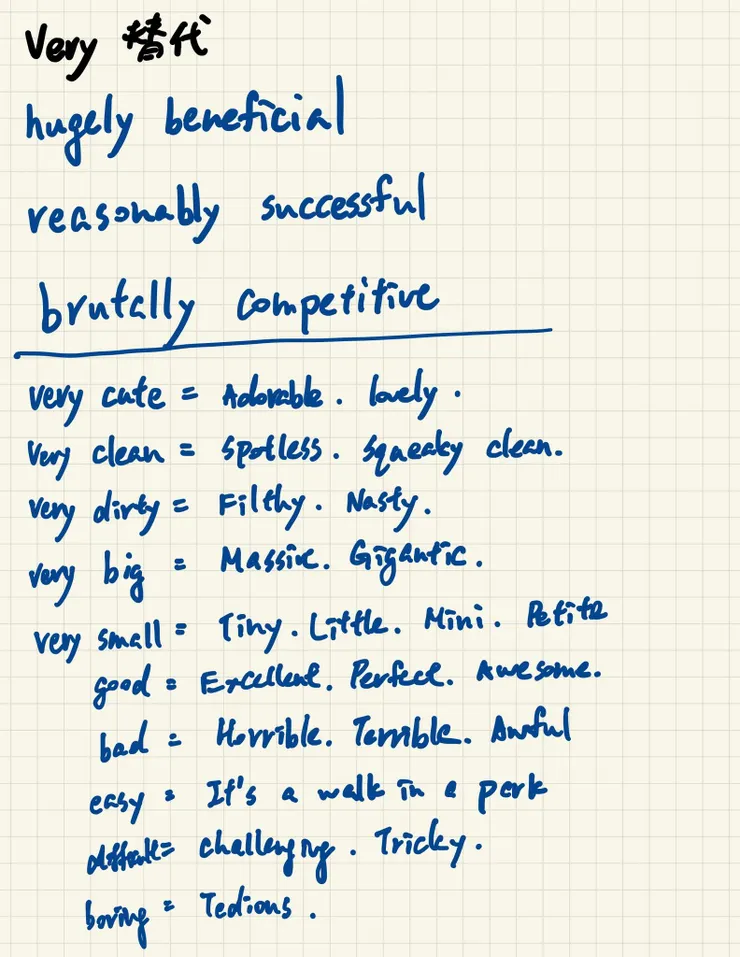 Very 替代
hugely beneficial
reasonably successful
brutally competitive
very cute = Adorable. lovely.
Very clean = Spotless. Squeaky clean.
very dirty = Filthy. Nasty.
very big = Massive. Gigantic.
very small = Tiny. Little. Mini. Petite
good = Excellent. Perfect. Awesome.
bad = Horrible. Terrible. Awful
easy = It's a walk in a park
difficult = challenging. Tricky.
boring = Tedious.